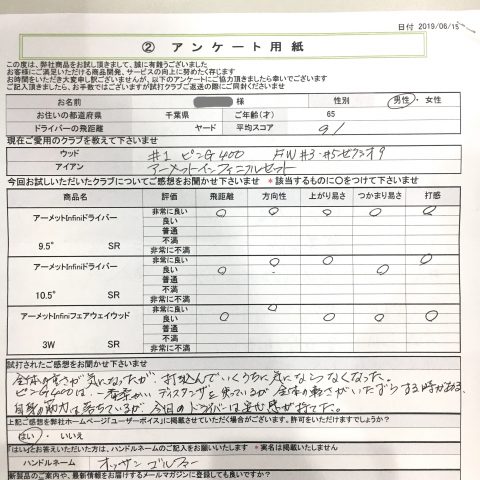 日付 2019/06/15
② アンケート用紙
この度は、弊社商品をお試し頂きまして、誠に有難うございました
お客様にご満足いただける商品開発、サービスの向上に努めたく存じます
お時間をいただき大変申し訳ございませんが、以下のアンケートにご協力頂きましたら幸いでございます
ご記入頂きましたら、お手数ではございますが試打クラブご返送の際にご同封くださいませ
お名前 様 性別 男性・女性
お住いの都道府県 千葉県 ご年齢(才) 65
ドライバーの飛距離 ヤード 平均スコア 91
現在ご愛用のクラブを教えて下さいませ
ウッド #1 ピンG400 FW #3・#5ゼクシオ9
アイアン アーメットインフィニフルセット
今回お試しいただいたクラブについてご感想をお聞かせ下さいませ *該当するものに○をつけて下さいませ
商品名 評価 飛距離 方向性 上がり易さ つかまり易さ 打感
アーメットInfiniドライバー
9.5° SR
非常に良い
良い
普通
不満
非常に不満
アーメットInfiniドライバー
10.5° SR
非常に良い
良い
普通
不満
非常に不満
アーメットInfiniフェアウェイウッド
3W SR
非常に良い
良い
普通
不満
非常に不満
試打されたご感想をお聞かせ下さいませ
全体の重さが気になったが、打込んでいくうちに気にならなくなった。
ピンG400は、一番柔かい ディスタンザを使っているが 全体の軽さがいたずらする時がある、
自身の筋力も落ちているが、今回のドライバーは安心感が持てた。
上記ご感想を弊社ホームページ「ユーザーボイス」に掲載する場合がございます。許可をいただけますでしょうか？
はい ・ いいえ
「はい」とお答えいただいた方は、ハンドルネームのご記入をお願いいたします *実名は掲載いたしません
ハンドルネーム オッサンゴルファー
新製品のご案内や、最新情報をお届けするメールマガジンに登録しても良いですか？